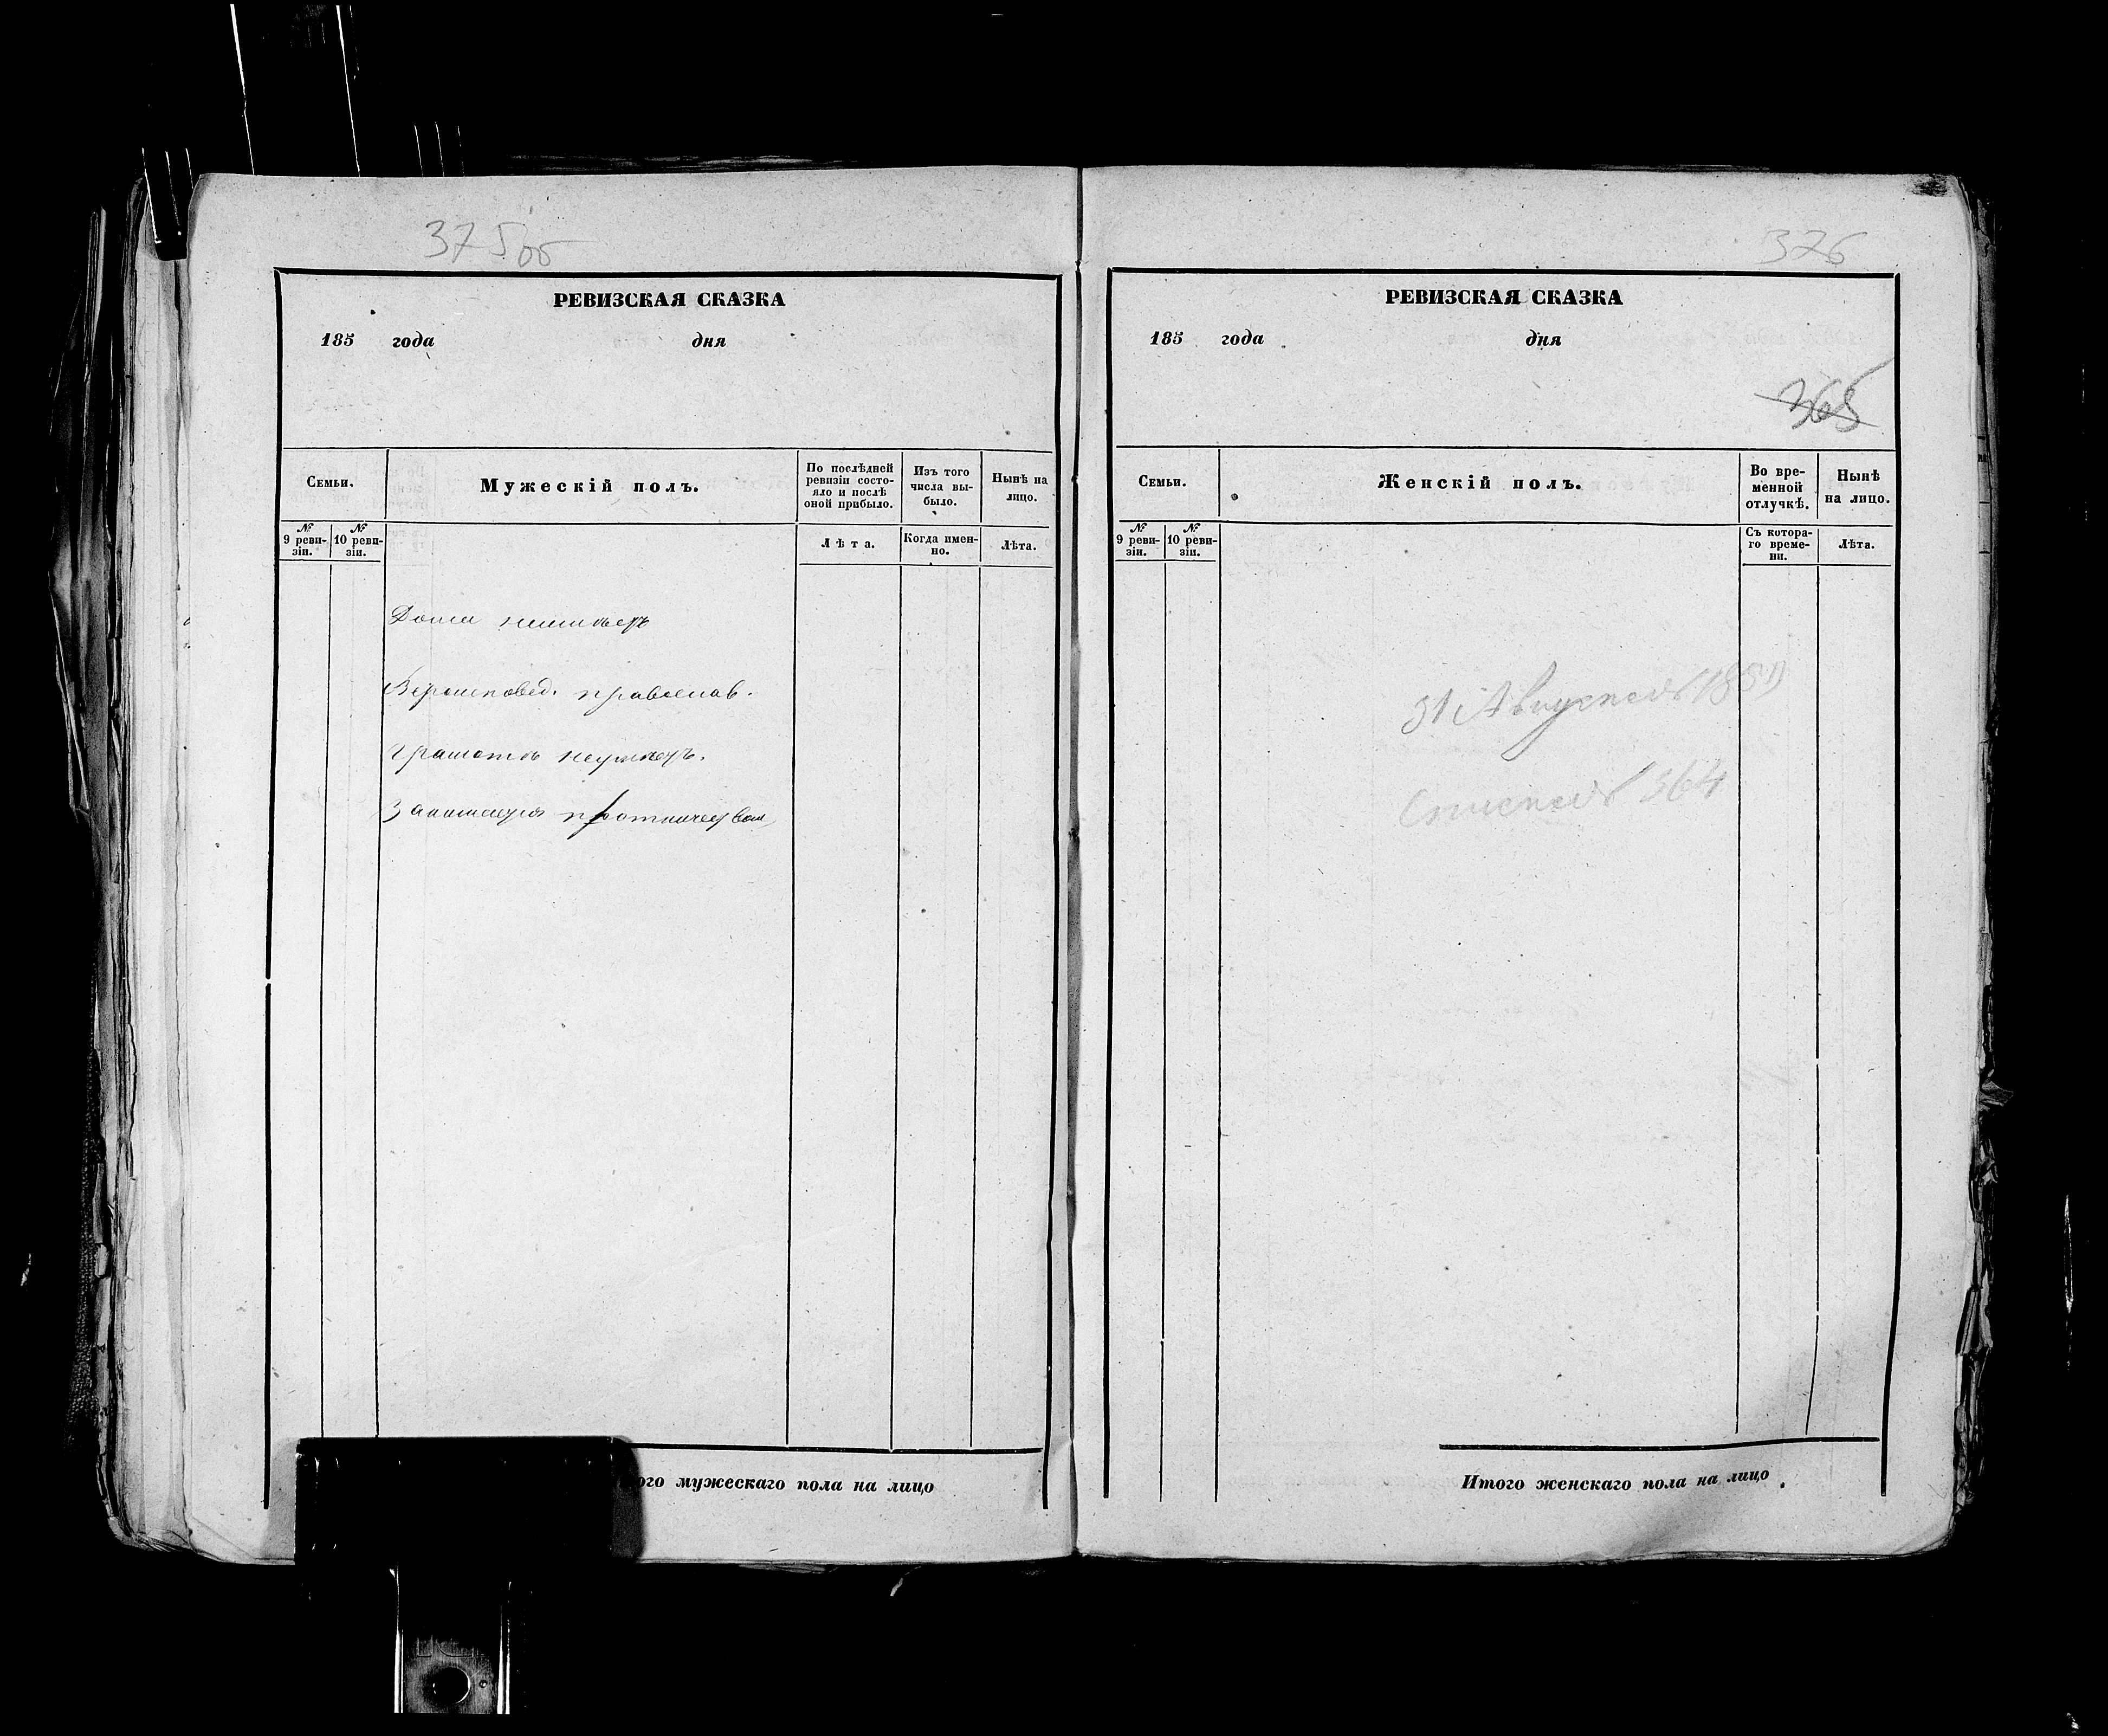 375об
РЕВИЗСКАЯ СКАЗКА
185 года дня
Семьи.
Мужескій полъ.
По послѣдней ревизіи состояло и послѣ оной прибыло.
Изъ того числа выбыло.
Нынѣ на лицо.
№ 9 ревизіи.
№ 10 ревизіи.
Лѣта.
Когда именно.
Лѣта.
Дома неимѣетъ
Вѣроисповед. православ.
Грамотѣ неумѣетъ.
Занимается плотничеством
ого мужескаго пола на лицо
376
РЕВИЗСКАЯ СКАЗКА
185 года дня
365
Семьи.
Женскій полъ.
Во временной отлучкѣ.
Нынѣ на лицо.
№ 9 ревизіи.
№ 10 ревизіи.
Съ котораго времени.
Лѣта.
31 Августа
364
Итого женскаго пола на лицо